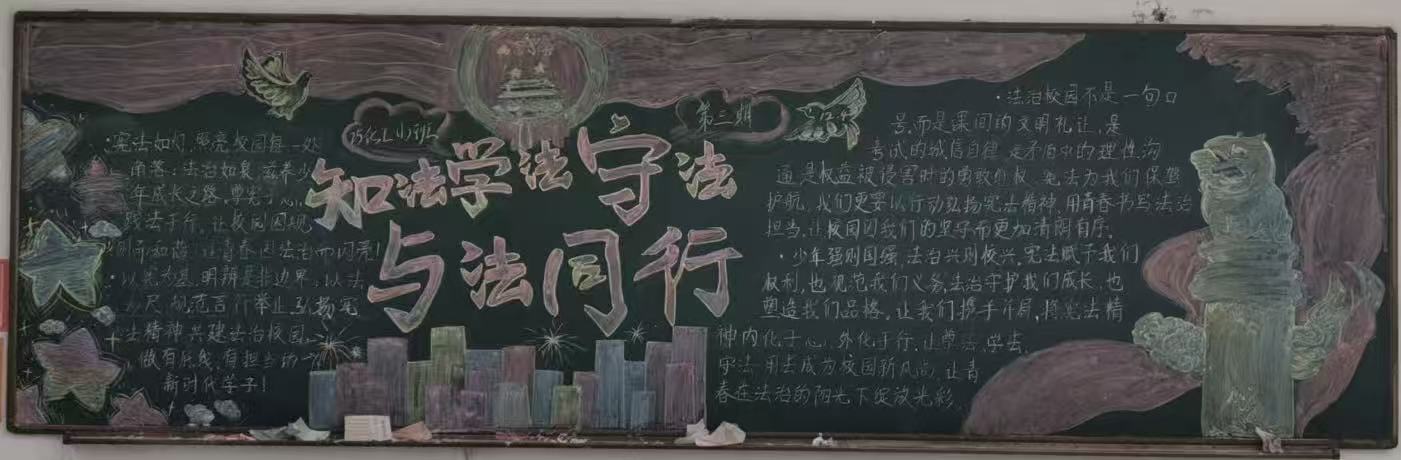 ·宪法如灯,照亮校园每一处
角落;法治如泉,滋养少
年成长之路,尊宪于心,
践法于行,让校园因规
则而和谐,让青春因法治而闪亮!
·以宪为基,明辨是非边界,以法
为尺,规范言行举止,弘扬宪
法精神,共建法治校园,
做有底线,有担当的
新时代学子!
第三期
知法学法守法
与法同行
·法治校园不是一句口
号,而是课间的文明礼让,是
考试的诚信自律,是矛盾中的理性沟
通,是权益被侵害时的勇敢维权,宪法为我们保驾
护航,我们更要以行动弘扬宪法精神,用青春书写法治
担当,让校园因我们的坚守而更加清朗有序。
·少年强则国强,法治兴则校兴,宪法赋予我们
权利,也规范我们义务,法治守护我们成长,也
塑造我们品格,让我们携手并肩,将宪法精
神内化于心,外化于行,让尊法,学法,
守法,用法成为校园新风尚,让青
春在法治的阳光下绽放光彩。